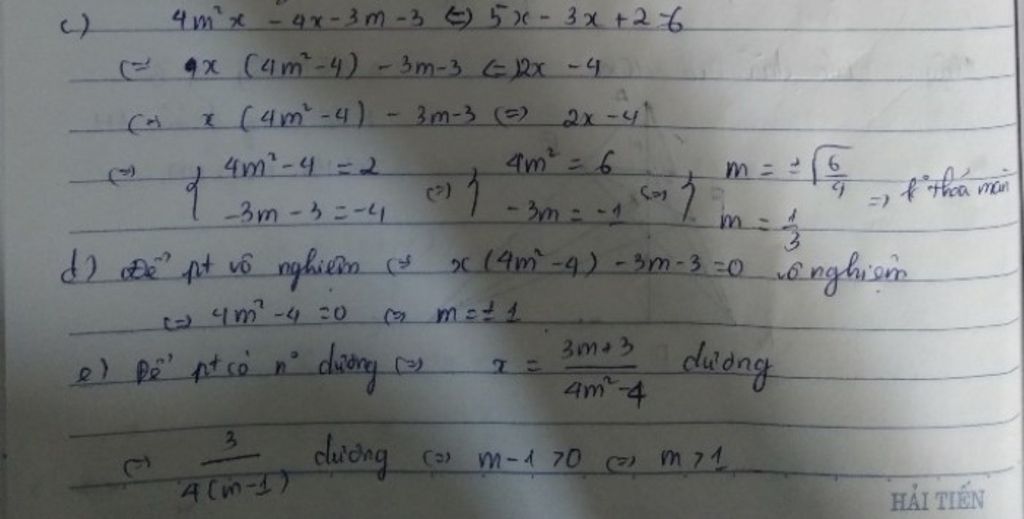 c) 4m²x - 4x - 3m - 3 ⇔ 5x - 3x + 2 = 6
⇔ x (4m² - 4) - 3m - 3 ⇔ 2x - 4
⇔ x (4m² - 4) - 3m - 3 ⇔ 2x - 4
⇔ { 4m² - 4 = 2 ; -3m - 3 = -4 ⇔ { 4m² = 6 ; -3m = -1 ⇔ { m = ±√(6/4) ; m = 1/3 ⇒ k° thoả mãn
d) Để pt vô nghiệm ⇔ x (4m² - 4) - 3m - 3 = 0 vô nghiệm
⇔ 4m² - 4 = 0 ⇔ m = ± 1
e) Để pt có n° dương ⇔ x = (3m + 3)/(4m² - 4) dương
⇔ 3/(4(m - 1)) dương ⇔ m - 1 > 0 ⇔ m > 1
HẢI TIẾN